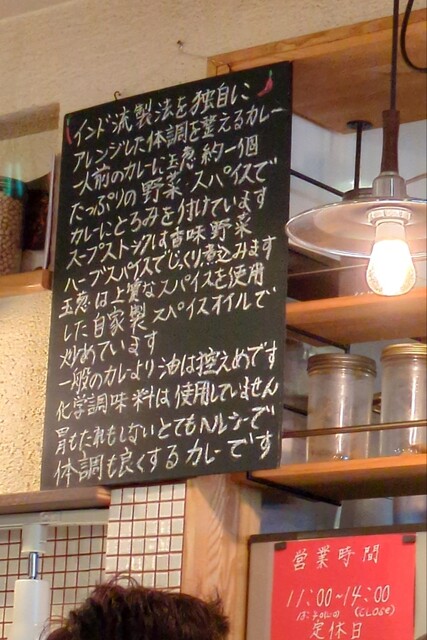 インド流製法を独自に
アレンジした体調を整えるカレー
一人前のカレーに玉葱約一個
たっぷりの野菜・スパイスで
カレーにとろみを付けています
スープストックは香味野菜
ハーブスパイスでじっくり煮込みます
玉葱は上質なスパイスを使用
した自家製スパイスオイルで
炒めています
一般のカレーより油は控えめです
化学調味料は使用していません
胃もたれもしないとてもヘルシーで
体調も良くするカレーです
営業時間
11:00~14:00
(CLOSE)
定休日